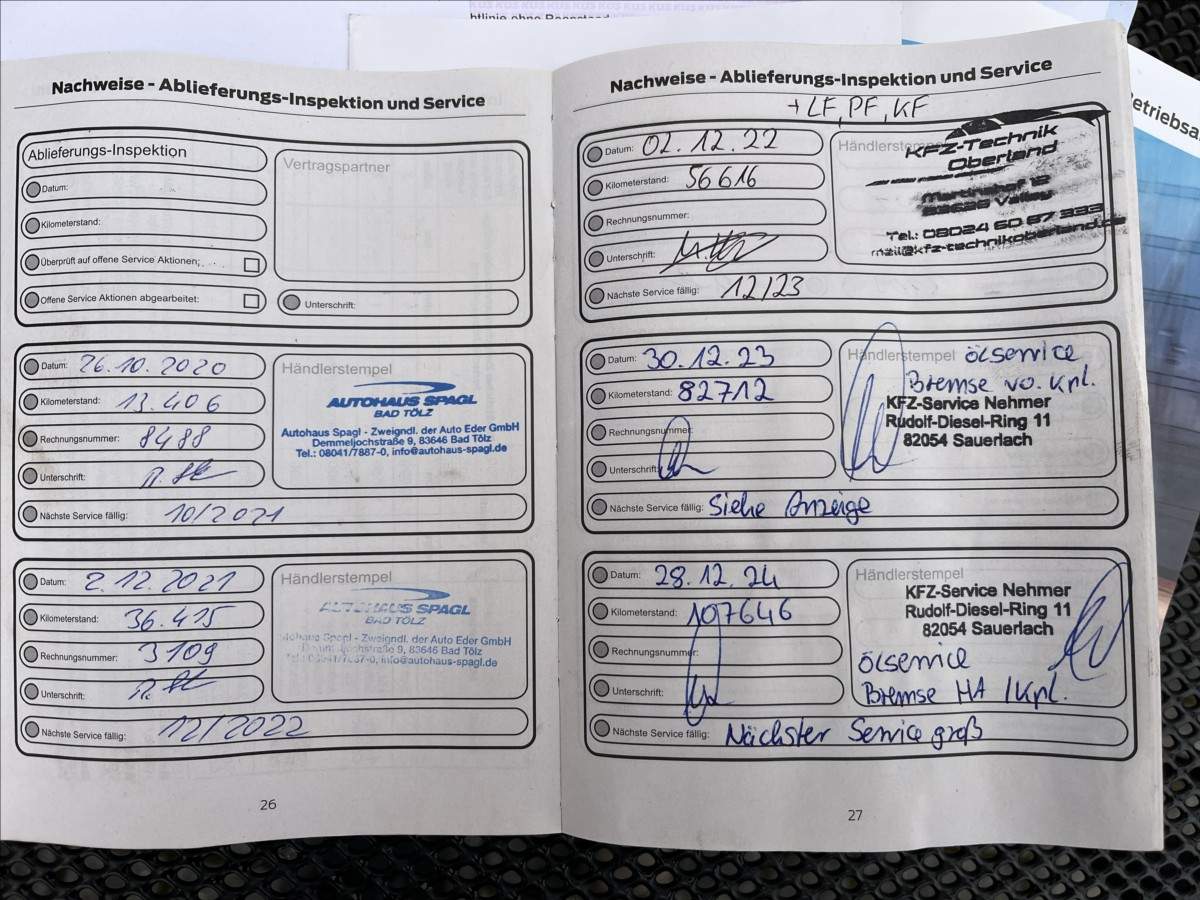 KUS KUS KUS KUS KUS KUS
htlinie ohne
Betriebsa
Nachweise - Ablieferungs-Inspektion und Service
Ablieferungs-Inspektion
Vertragspartner
Datum:
Kilometerstand:
Überprüft auf offene Service Aktionen:
Offene Service Aktionen abgearbeitet:
Unterschrift:
Datum: 26.10.2020
Kilometerstand: 13.406
Rechnungsnummer: 8488
Unterschrift:
Nächste Service fällig: 10/2021
Händlerstempel
AUTOHAUS SPAGL
BAD TÖLZ
Autohaus Spagl - Zweigndl. der Auto Eder GmbH
Demmeljochstraße 9, 83646 Bad Tölz
Tel.: 08041/7887-0, info@autohaus-spagl.de
Datum: 2.12.2021
Kilometerstand: 36.415
Rechnungsnummer: 3109
Unterschrift:
Nächste Service fällig: 12/2022
Händlerstempel
AUTOHAUS SPAGL
BAD TÖLZ
Autohaus Spagl - Zweigndl. der Auto Eder GmbH
9, 83646 Bad Tölz
Tel.: 08041/7887-0, info@autohaus-spagl.de
26
Nachweise - Ablieferungs-Inspektion und Service
+LF, PF, KF
Datum: 02.12.22
Kilometerstand: 56616
Rechnungsnummer:
Unterschrift:
Nächste Service fällig: 12/23
Händlerstempel
KFZ-Technik
Oberland
Valley
Tel.: 08024 60 87 333
mail@kfz-technikoberland.de
Datum: 30.12.23
Kilometerstand: 82712
Rechnungsnummer:
Unterschrift:
Nächste Service fällig: Siehe Anzeige
Händlerstempel ölservice
Bremse vo. Kpl.
KFZ-Service Nehmer
Rudolf-Diesel-Ring 11
82054 Sauerlach
Datum: 28.12.24
Kilometerstand: 107646
Rechnungsnummer:
Unterschrift:
Nächste Service fällig: Nächster Service groß
Händlerstempel
KFZ-Service Nehmer
Rudolf-Diesel-Ring 11
82054 Sauerlach
ölservice
Bremse HA /Kpl.
27